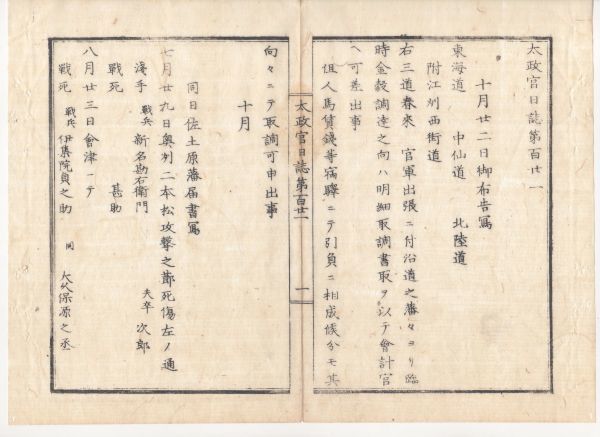 太政官日誌第百廿一
十月廿二日御布告寫
東海道 中仙道 北陸道
附江刕西街道
右三道春來 官軍出張ニ付沿道之藩々ヨリ臨
時金穀調達之向ハ明細取調書取ヲ以テ會計官
ヘ可差出事
但人馬賃錢等宿驛ニテ引負ニ相成候分モ其
太政官日誌第百廿一 一
向々ニテ取調可申出事
十月
同日佐土原藩届書寫
七月廿九日奥刕二本松攻擊之節死傷左ノ通
淺手 戰兵 新名勘右衛門 夫卒 次郎
戰死 甚助
八月廿三日會津ニテ
戰死 戰兵 伊集院負之助 同 大久保源之丞